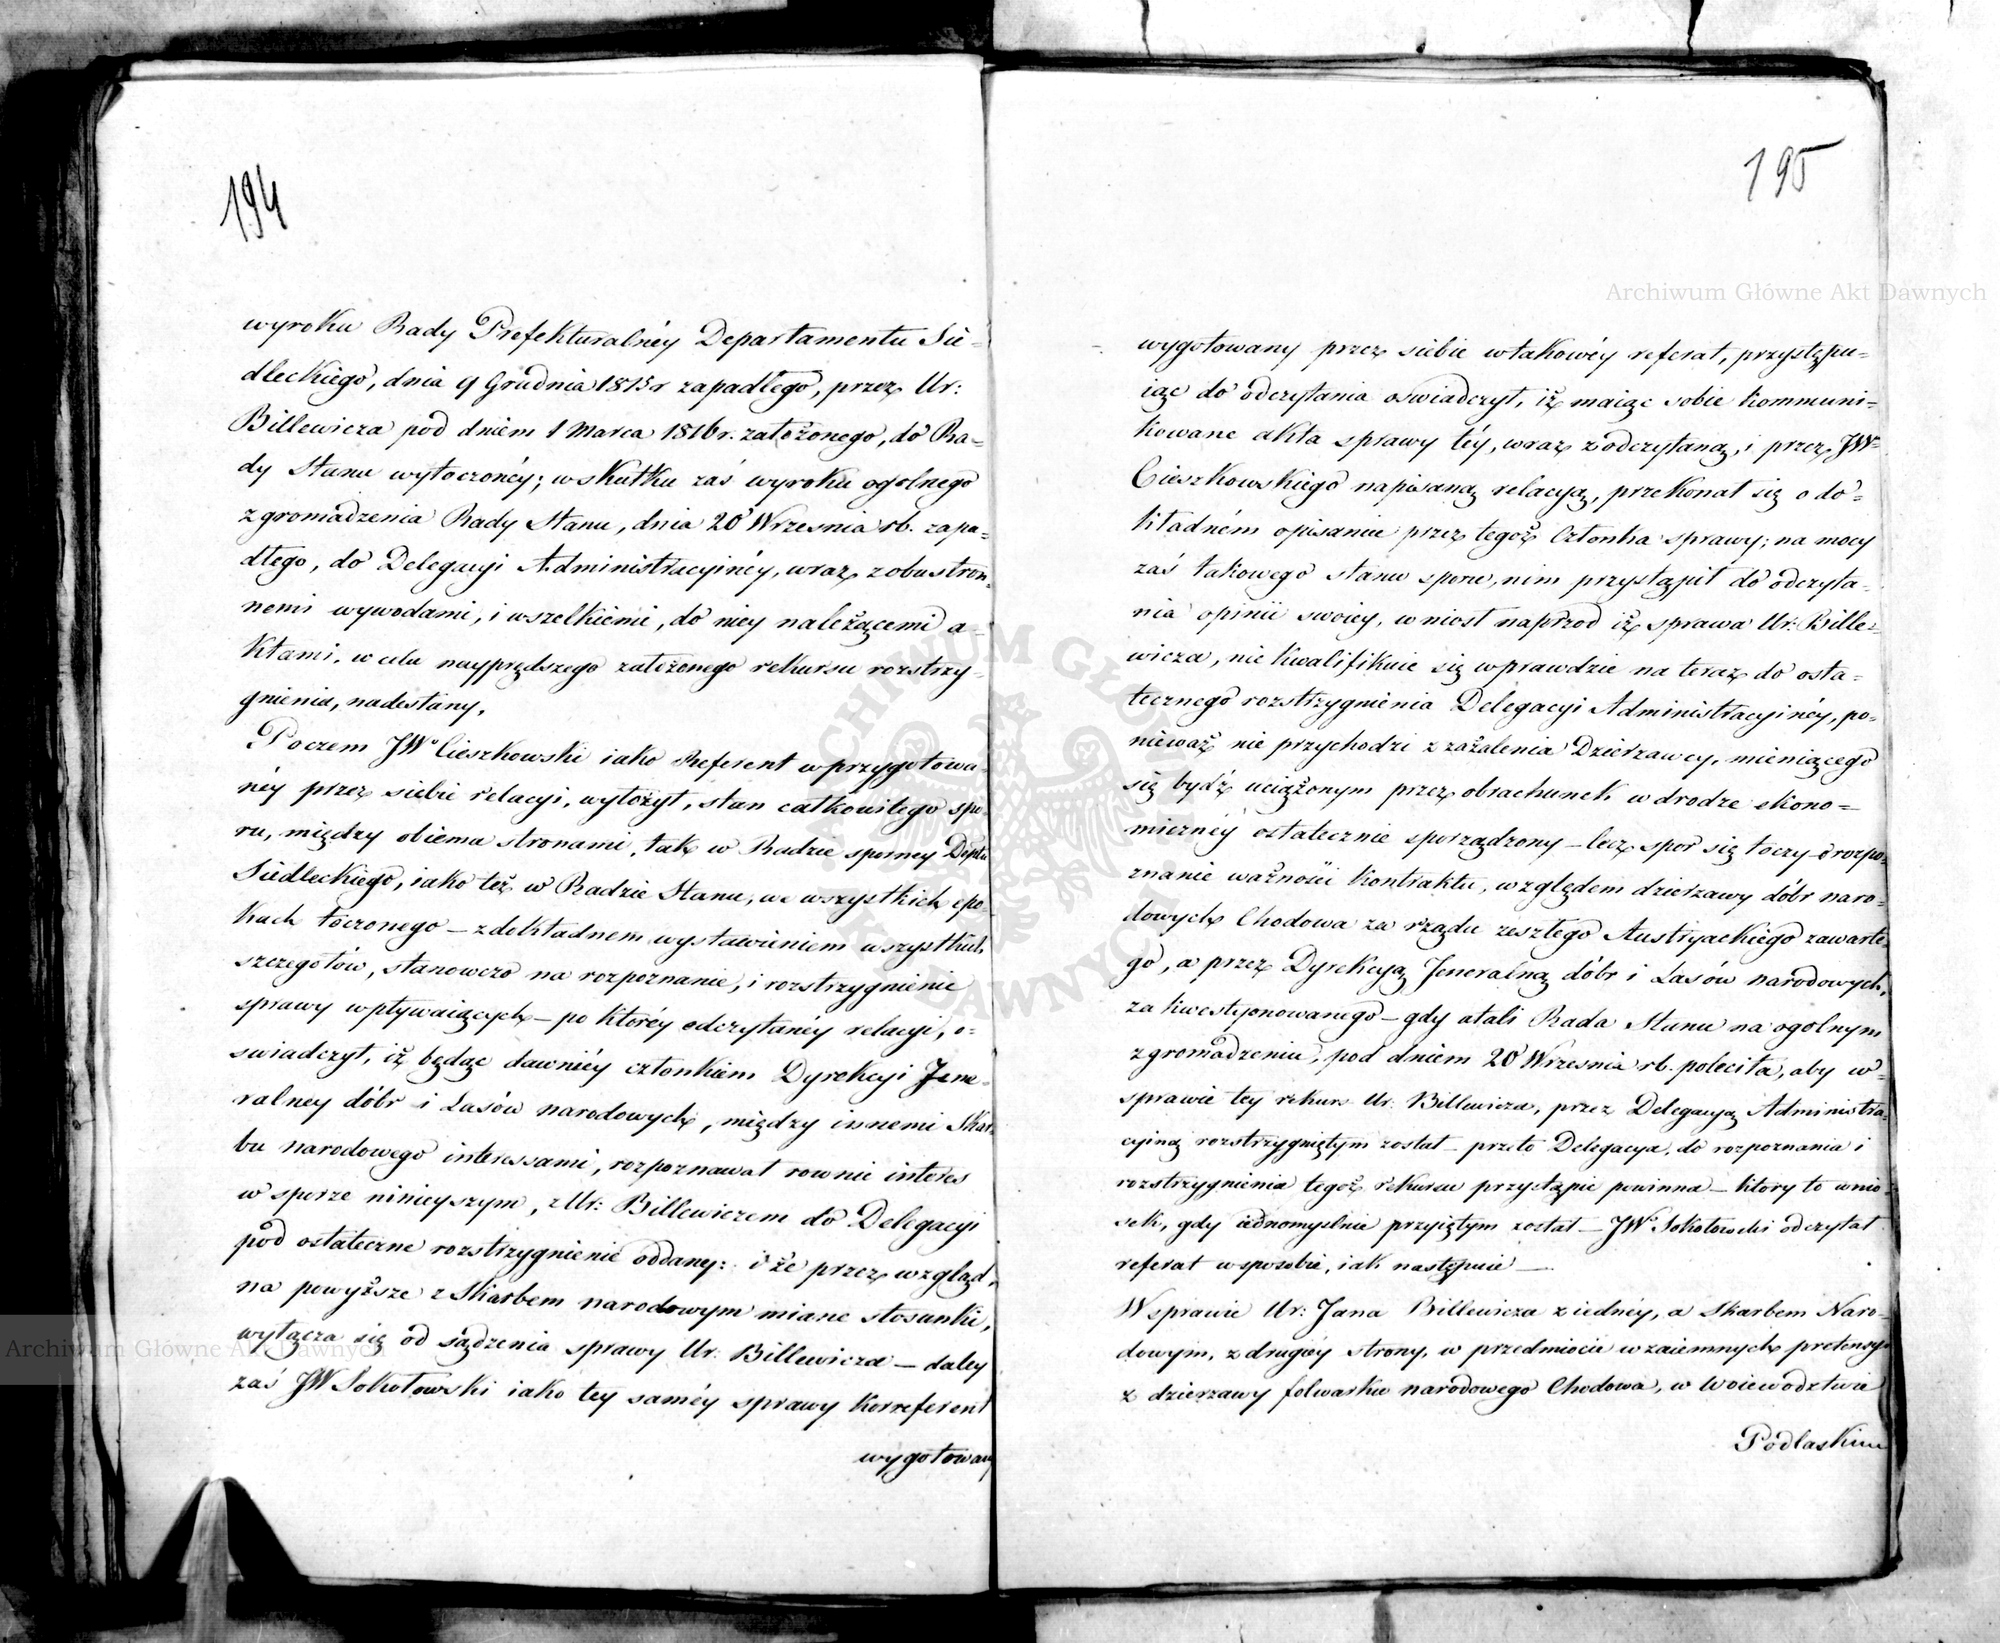 194
wyroku Rady Prefekturalnéy Departamentu Sie-
dleckiego, dnia 9 Grudnia 1815 r zapadłego, przez Ur:
Billewicza pod dniem 1 Marca 1816 r. założonego, do Ra-
dy Stanu wytoczonéy; w skutku zaś wyroku ogolnego
zgromadzenia Rady Stanu, dnia 20 Września rb. zapa-
dłego, do Delegacyi Administracyinéy, wraz z obustron-
nemi wywodami, i wszelkiemi, do niey należącemi a-
ktami, w celu nayprędszego założonego rekursu rozstrzy-
gnienia, nadesłany.
Poczem JW Cieszkowski iako Referent w przygotowa-
néy przez siebie relacyi, wyłożył, stan całkowitego spo-
ru, między obiema stronami, tak w Radzie sporney Deptu
Siedleckiego, iako też w Radzie Stanu, we wszystkich epo-
kach toczonego – z dokładnem wystawieniem wszystkich
szczegołów, stanowczo na rozpoznanie, i rozstrzygnienie
sprawy wpływaiących – po któréy odczytanéy relacyi, o-
świadczył, iż będąc dawniéy członkiem Dyrekcyi Jene-
ralney dóbr i Lasów narodowych, między innemi Skar-
bu narodowego interessami, rozpoznawał rownie interes
w sporze ninieyszym, z Ur: Billewiczem do Delegacyi
pod ostateczne rozstrzygnienie oddany: i że przez wzgląd,
na powyższe z Skarbem narodowym miane stosunki,
wyłącza się od sądzenia sprawy Ur: Billewicza – daley
zaś JW Sokołowski iako tey saméy sprawy Korreferent
wygotowany
195
wygotowany przez siebie w takowéy referat, przystępu-
iąc do odczytania oświadczył, iż maiąc sobie kommuni-
kowane akta sprawy téy, wraz z odczytaną, i przez JW
Cieszkowskiego napisaną relacyą, przekonał się o do-
kładném opisaniu przez tegoż Członka sprawy; na mocy
zaś takowego stanu sporu, nim przystąpił do odczyta-
nia opinii swoiey, wniosł naprzod iż sprawa Ur: Bille-
wicza, nie kwalifikuie się wprawdzie na teraz do osta-
tecznego rozstrzygnienia Delegacyi Administracyinéy, po-
nieważ nie przychodzi z zażalenia Dzierzawcy, mieniącego
się bydź uciążonym przez obrachunek w drodze ekono-
micznéy ostatecznie sporządzony – lecz spor się toczy o rozpo-
znanie ważności kontraktu, względem dzierzawy dóbr naro-
dowych Chodowa za rządu zeszłego Austryackiego zawarte-
go, a przez Dyrekcyą Jeneralną dóbr i Lasów narodowych,
zakwestyonowanego – gdy atoli Rada Stanu na ogolnym
zgromadzeniu, pod dniem 20 Września rb. poleciła, aby w
sprawie tey rekurs Ur: Billewicza, przez Delegacyą Administra-
cyiną rozstrzygniętym został – przeto Delegacya, do rozpoznania i
rozstrzygnienia tegoż rekursu przystąpić powinna – ktory to wnio-
sek, gdy iednomyślnie przyiętym został – JW Sokołowski odczytał
referat w sposobie, iak następuie —
W sprawie Ur: Jana Billewicza z iednéy, a Skarbem Naro-
dowym, z drugiéy strony, w przedmiocie wzaiemnych pretensyi
z dzierzawy folwarku narodowego Chodowa, w Woiewodztwie
Podlaskim
Archiwum Główne Akt Dawnych
Archiwum Główne Akt Dawnych
ARCHIWUM GŁÓWNE AKT DAWNYCH